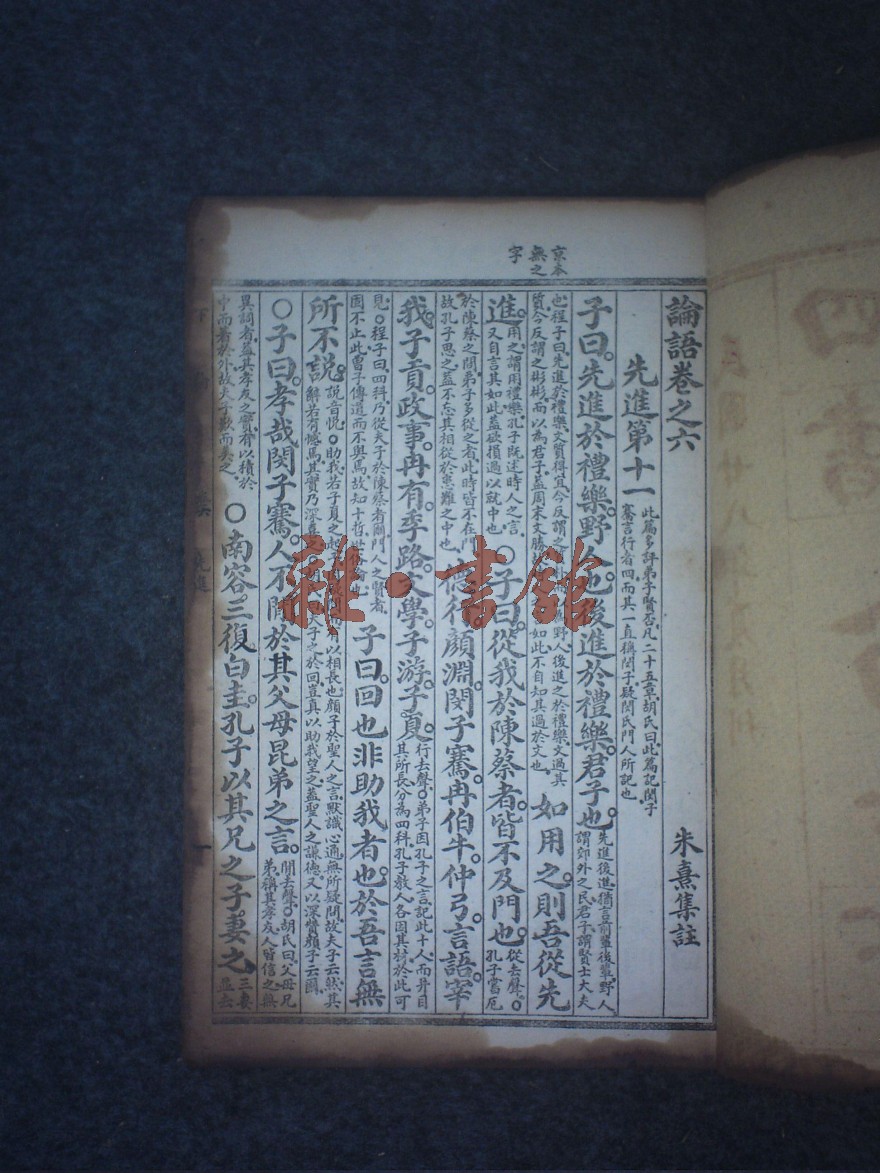 京本
無之
字
論語卷之六
朱熹集註
先進第十一
此篇多評弟子賢否凡二十五章胡氏曰此篇記閔子
騫言行者四而其一直稱閔子疑閔氏門人所記也
子曰先進於禮樂野人也後進於禮樂君子也
先進後進猶言前輩後輩野人
謂郊外之民君子謂賢士大夫
也程子曰先進於禮樂文質得宜今反謂之
野人後進之於禮樂文過其
質今反謂之彬彬而以為君子蓋周末文勝
如此不自知其過於文也
如用之則吾從先
進
用之謂用禮樂孔子既述時人之言
又自言其如此蓋欲損過以就中也
○子曰從我於陳蔡者皆不及門也
從去聲○
孔子嘗厄
於陳蔡之間弟子多從之者此時皆不在門
故孔子思之蓋不忘其相從於患難之中也
德行顏淵閔子騫冉伯牛仲弓言語宰
我子貢政事冉有季路文學子游子夏
行去聲○弟子因孔子之言記此十人而并目
其所長分為四科孔子教人各因其材於此可
見○程子曰四科乃從夫子於陳蔡者爾門人之賢者
固不止此曾子傳道而不與焉故知十哲世俗論也
子曰回也非助我者也於吾言無
所不說
說音悅○助我若子夏之起予
以相長也顏子於聖人之言默識心通無所疑問故夫子云然其
言辭若有憾焉其實乃深喜之
夫子之於回豈真以助我望之蓋聖人之謙德又以深贊顏子云爾
○子曰孝哉閔子騫人不間於其父母昆弟之言
間去聲○胡氏曰父母兄
弟稱其孝友人皆信之無
異詞者蓋其孝友之實有以積於
中而著於外故夫子歎而美之
○南容三復白圭孔子以其兄之子妻之
三妻
並去
先進
四書